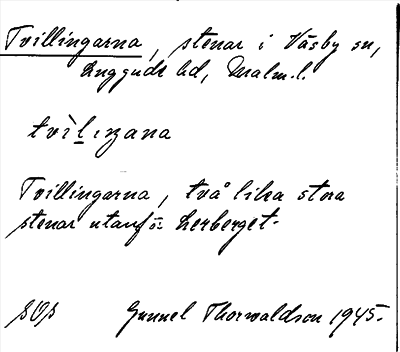 Tvillingarna, stenar i Väsby sn,
Luggude hd, Malm.l.
tvìlıŋana
Tvillingarna, två lika stora
stenar utanför herberget.
SOS Gunnel Thorwaldson 1945.